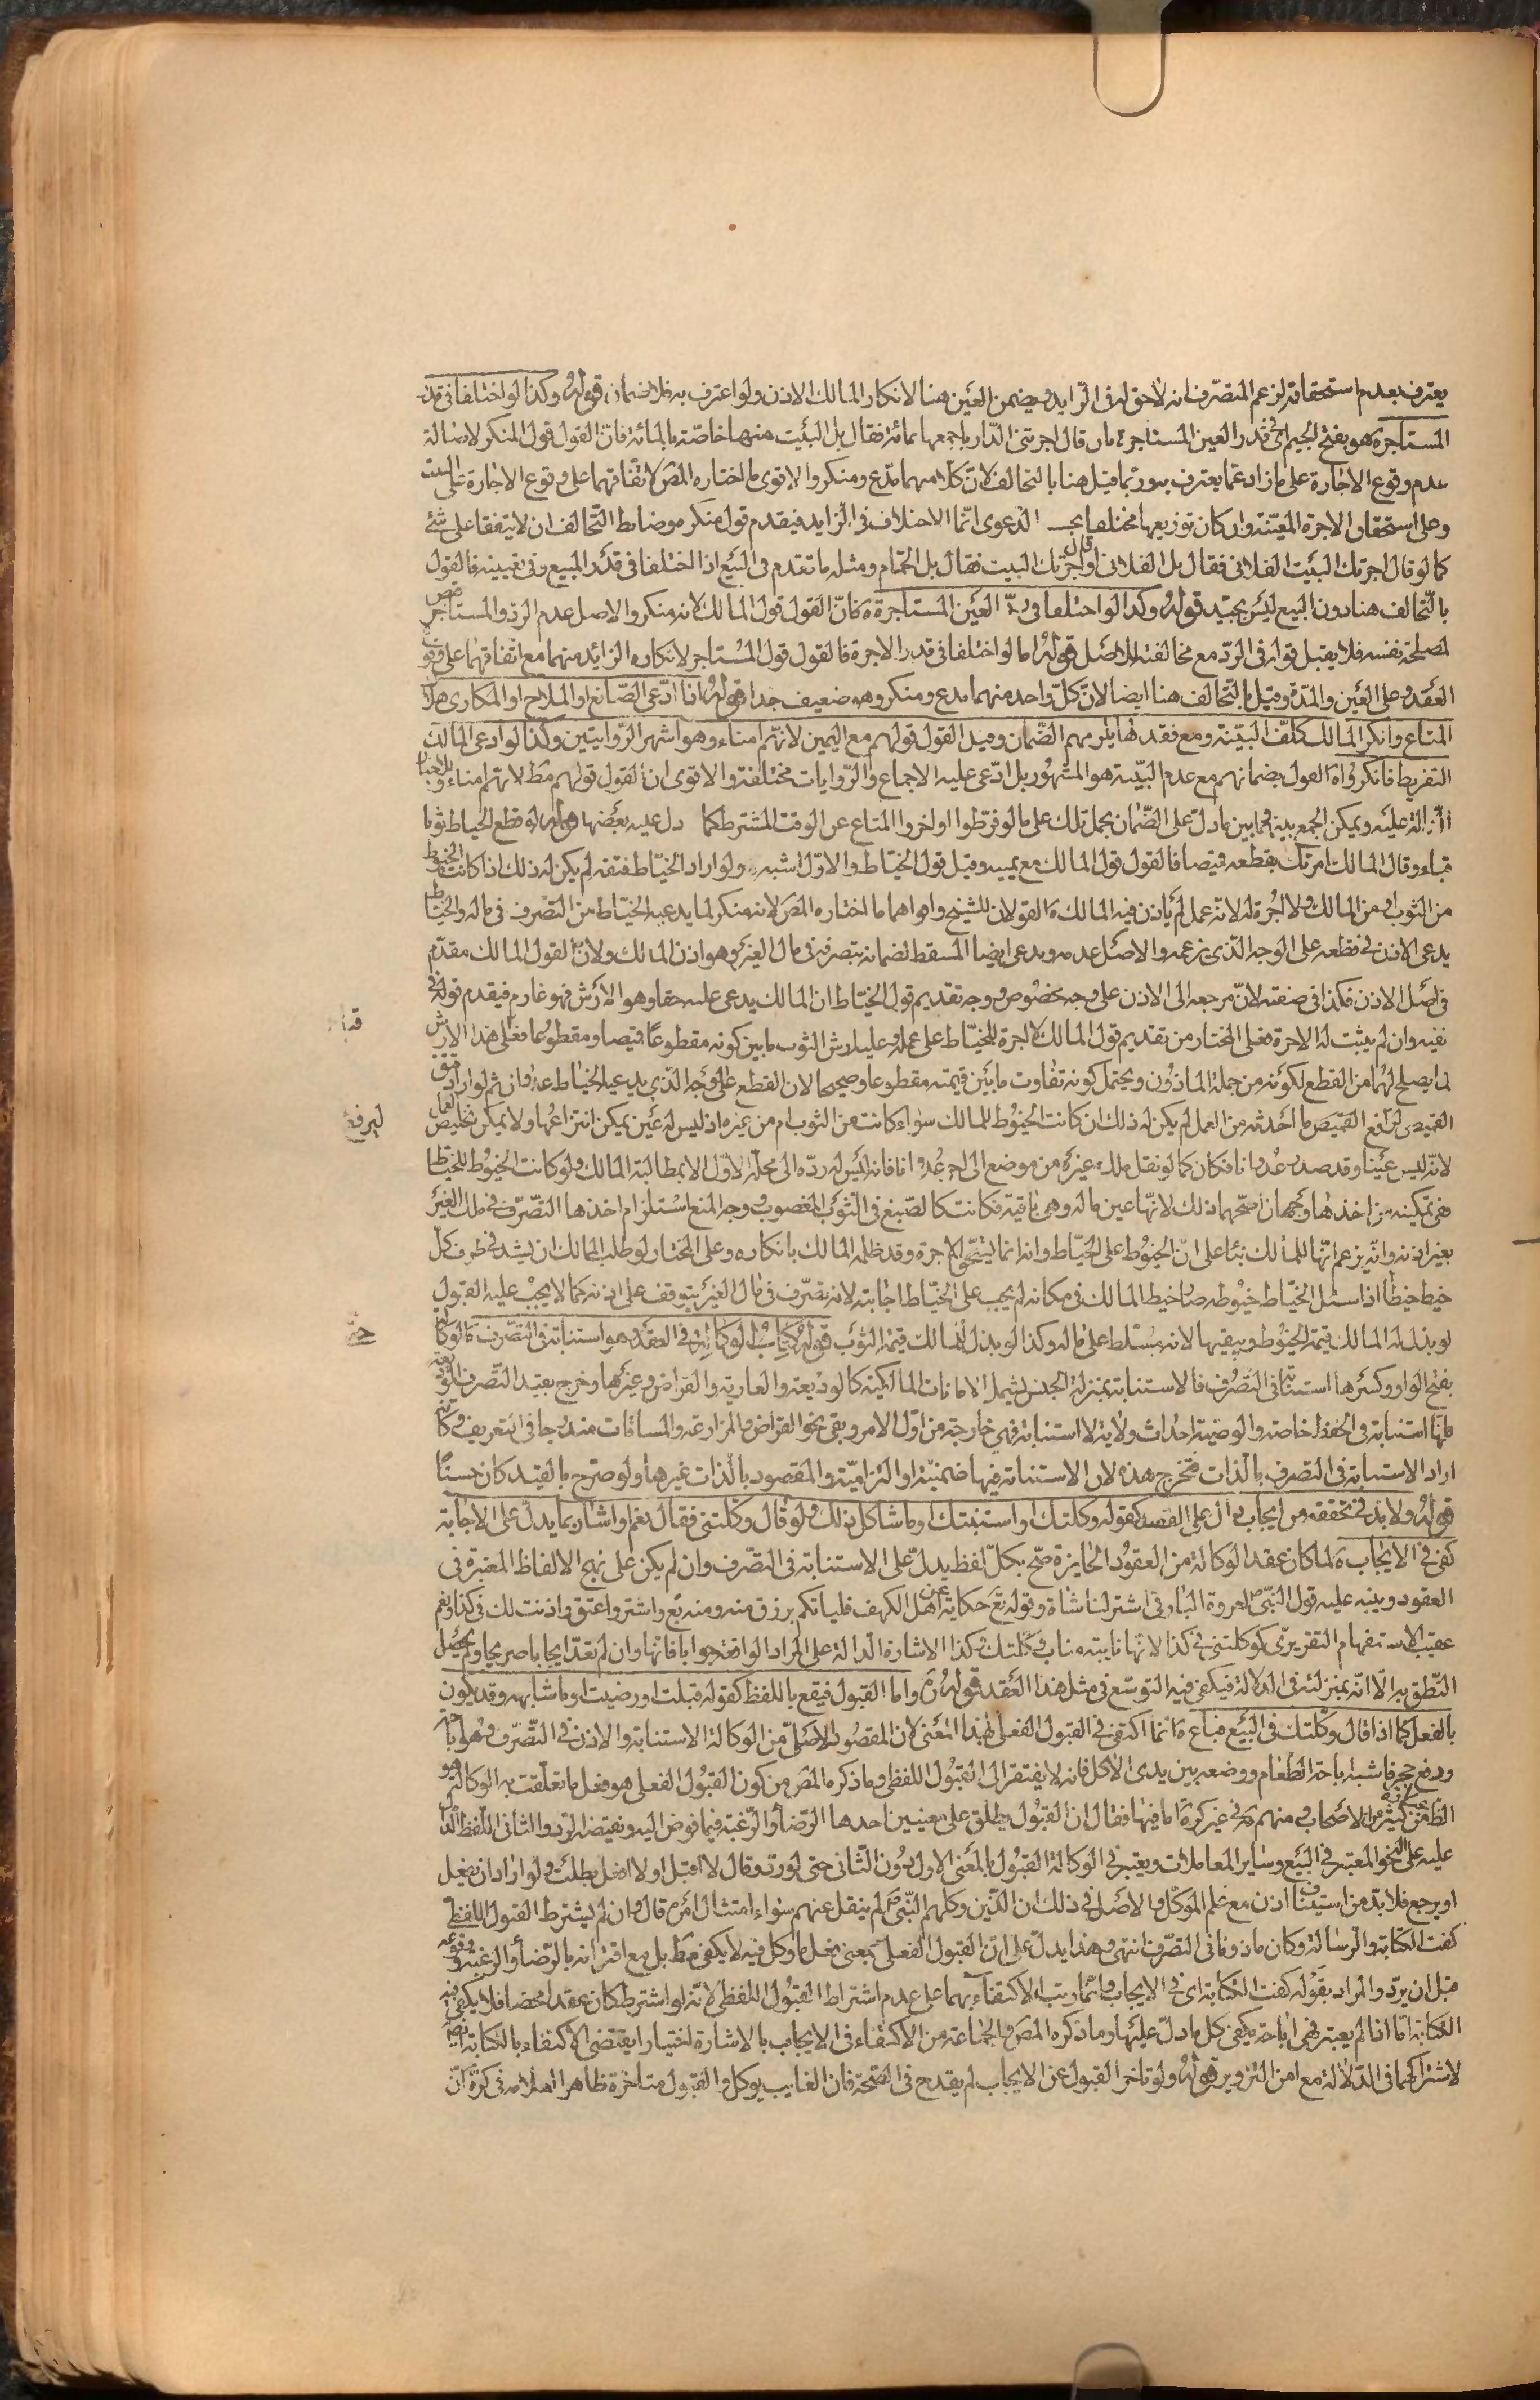 يعترف بعدم استحقاقه لزعم المتصرف انه لا حق له فى الزايد ويضمن العين هنا لانكار المالك الاذن ولو اعترف به فلا ضمان قوله وكذا لو اختلفا فى قدر
المستاجرة هو بفتح الجيم اى قدر العين المستاجرة بان قال اجرتنى الدار باجمعها بمائة فقال بل البيت منها خاصة بالمائة فانّ القول قول المنكر لاصالة
عدم وقوع الاجارة على ما زاد عمّا يعترف به وربّما قيل هنا بالتحالف لانّ كلا منهما مدّع ومنكر والاقوى ما اختاره المصَ لاتفاقهما على وقوع الاجارة على البيت
وعلى استحقاق الاجرة المعيّنة وان كان توزيعها مختلفا بحسب الدعوى انّما الاختلاف فى الزايد فيقدم قول منكره وضابط التّحالف ان لا يتفقا على شئ
كما لو قال اجرتك البيت الفلانى فقال بل الفلانى او قال اجرتك البيت فقال بل الحمّام ومثله ما تقدم فى البيع اذا اختلفا فى قدر المبيع وفى تعيينه فالقول
بالتّحالف هنا دون البيع ليس بجيّد قوله وكذا لو اختلفا فى ردّ العين المستاجرة ة فانّ القول قول المالك لانه منكر والاصل عدم الردّ والمستاجر قبض
لمصلحة نفسه فلا يقبل قوله فى الردّ مع مخالفته للاصل قوله اما لو اختلفا فى قدر الاجرة فالقول قول المستاجر لانكاره الزائد منهما مع اتّفاقهما على وقوع
العقد وعلى العين والمدّة وقيل بالتّحالف هنا ايضا لانّ كلّ واحد منهما مدع ومنكر وهو ضعيف جدا قوله اذا ادّعى الصّانع او الملاح او المكارى هلاك
المتاع وانكر المالك كلّف البيّنة ومع فقدها يلزمهم الضّمان وقيل القول قولهم مع اليمين لانهّم امناء وهو اشهر الرّوايتين وكذا لو ادعى المالك
التفريط فانكروا ة القول بضمانهم مع عدم البيّنة هو المشهور بل ادّعى عليه الاجماع والرّوايات مختلفة والاقوى ان القول قولهم مطَ لانهّم امناء وللاخبار
الدّالة عليه ويمكن الجمع بينها وبين ما دلّ على الضّمان بحمل تلك على ما لو فرّطوا او اخّروا المتاع عن الوقت المشترط كما دل عليه بعضها قوله لو قطع الخياط ثوبا
قباء وقال المالك امرتك بقطعه قميصا فالقول قول المالك مع يمينه وقيل قول الخيّاط والاوّل اشبه ولو اراد الخيّاط فتقه لم يكن له ذلك اذا كانت الخيوط
من الثوب او من المالك ولا اجرة له لانه عمل لم ياذن فيه المالك ة القولان للشيخ واقواهما ما اختاره المصَ لانه منكر لما يدعيه الخيّاط من التصرف فى ماله والخياط
يدعى الاذن فى قطعه على الوجه الذى يزعمه والاصل عدمه ويدعى ايضا المسقط لضمانه بتصرفه فى مال الغير وهو اذن المالك ولانّ القول المالك مقدّم
فى اصل الاذن فكذا فى صفته لانّ مرجعه الى الاذن على وجه مخصوص ووجه تقديم قول الخيّاط ان المالك يدعى عليه حقا وهو الارش فهو غارم فيقدم قوله فى
نفيه وان لم يثبت له الاجرة فعلى المختار من تقديم قول المالك لا اجرة للخيّاط على عمله وعليه ارش الثوب ما بين كونه مقطوعا قميصا ومقطوعا فعلى هذا الارش
لما يصلح لهما من القطع لكونه من جملة الماذون ويحتمل كونه تفاوت ما بين قيمته مقطوعا وصحيحا لان القطع على الوجه الّذى يدعيه الخيّاط عدوان ثم لو اراد فتق
القميص ليرفع القميص ما احدثه من العمل لم يكن له ذلك ان كانت الخيوط للمالك سواء كانت من الثوب ام من غيره اذ ليس له عين يمكن انتزاعها ولا يمكن تخليص العمل
لانّه ليس عينا وقد صدر عدوانا فكان كما لو نقل ملك غيره من موضع الى اخر عدوانا فانه ليس له ردّه الى محله الاوّل الا بمطالبة المالك ولو كانت الخيوط للخيّاط
ففى تمكينه من اخذها وجهان اصحّهما ذلك لانّها عين ماله وهى باقية فكانت كالصّبغ فى الثوب المغصوب ووجه المنع استلزام اخذها التصّرف فى ملك الغير
بغير اذنه وانّه يزعم انّها للمالك بناء على انّ الخيوط على الخيّاط وانه انما يستحقّ الاجرة وقد ظلمه المالك بانكاره وعلى المختار لو طلب المالك ان يشد فى طرف كلّ
خيط خيطا اذا استل الخيّاط خيوطه صار خيط المالك فى مكانه لم يجب على الخيّاط اجابته لانه تصرّف فى مال الغير يتوقف على اذنه كما لا يجب عليه القبول
لو بذل له المالك قيمة الخيوط ويبقيها لانه مسّلط على ماله وكذا لو بذل للمالك قيمة الثوب قوله كتاب الوكالة فى العقد وهو استنابة فى التصّرف ة الوكالة
بفتح الواو وكسرها استنابة فى التصرّف فالاستنابة بمنزلة الجنس يشمل الامانات المالكية كالوديعة والعارية والقراض وغيرها وخرج بقيد التّصرف الوديعة
فانها استنابة فى الحفظ خاصة والوصية احداث ولاية لا استنابة فهى خارجة من اوّل الامر وبقى نحو القراض والمزارعة والمساقات مندرجا فى التعريف وكانه
اراد الاستنابة فى التصرف بالّذات فتخرج هذه لان الاستنابة فيها ضمنيّة او التزاميّة والمقصود بالّذات غيرها ولو صرّح بالقيد كان حسنا
قوله ولا بدّ فى تحققه من ايجاب دال على القصد كقوله وكلتك او استنبتك او ما شاكل ذلك ولو قال وكّلتنى فقال نعم او اشار بما يدلّ على الاجابة
كفى فى الايجاب ة لما كان عقد الوكالة من العقود الجايزة صحّ بكلّ لفظ يدلّ على الاستنابة فى التصّرف وان لم يكن على نهج الالفاظ المعتبرة فى
العقود وينبه عليه قول النبّى ص لعروة البارقى اشتر لنا شاة وقوله تعَ حكاية عن اهل الكهف فلياتكم برزق منه ومنه بع واشتر واعتق واذنت لك فى كذا ونعم
عقيب الاستفهام التقريرّى كوكلتنى فى كذا لانّها نايبة مناب وكّلتك وكذا الاشارة الّدالة على المراد الواقعة جوابا فانّها وان لم تعدّ ايجابا صريحا ولم يحصل
النّطق به الّا انّه بمنزلته فى الدلالة فيكفى فيه التوسّع فى مثل هذا العقد قوله رَه واما القبول فيقع باللفظ كقوله قبلت او رضيت او ما شابهه وقد يكون
بالفعل كما اذا قال وكّلتك فى البيع فباع ة انّما اكتفى فى القبول الفعلى بهذا المعنى لانّ المقصود الاصلّى من الوكالة الاستنابة والاذن فى التّصرّف وهو اباحة
ورفع حجر فاشبه اباحة الطعام ووضعه بين يدى الاكل فانه لا يفتقر الى القبول اللفظى وما ذكره المصَ من كون القبول الفعلى هو فعل ما تعلّقت به الوكالة هو
الظّاهر من عبارة كثير من الاصحاب ومنهم ة فى غير كرة امّا فيها فقال ان القبول يطلق على معنيين احدها الرّضا والرّغبة فيما فوض اليه ونقيضه الردّ والثانى اللّفظ الّدال
عليه على النحو المعتبر فى البيع وساير المعاملات ويعتبر فى الوكالة القبول بالمعنى الاول دون الثّانى حتى لو ردّ وقال لا اقبل او لا افعل بطلت ولو اراد ان يفعل
او يرجع فلا بدّ من استيناف اذن مع علم الموكّل والاصل فى ذلك ان الّذين وكلهم النّبى صَ لم ينقل عنهم سواء امتثال امره قال وان لم يشترط القبول اللفظى
كفت الكتابة والرسالة وكان ماذونا فى التصّرف انتهى وهذا يدلّ على انّ القبول الفعلى بمعنى فعل ما وكل فيه لا يكفى مطَ بل مع اقترانه بالرّضا والرغبة ووقوعه
قبل ان يردّ والمراد بقوله كفت الكتابة اى فى الايجاب وانّما رتب الاكتفاء بهما على عدم اشتراط القبول اللفظى لانّه لو اشترط كان عقدا محضا فلا يكفى فيه
الكتابة امّا اذا لم يعتبر فهى اباحة يكفى كل ما دلّ عليها وما ذكره المصَ والجماعة من الاكتفاء فى الايجاب بالاشارة اختيارا يقتضى الاكتفاء بالكتابة ايضا
لاشتراكهما فى الدّلالة مع امن التزوير قوله ولو تاخر القبول عن الايجاب لم يقدح فى الصّحة فان الغايب يوكل والقبول متاخر ة ظاهر العلامة فى كرة انّ
ليرفع